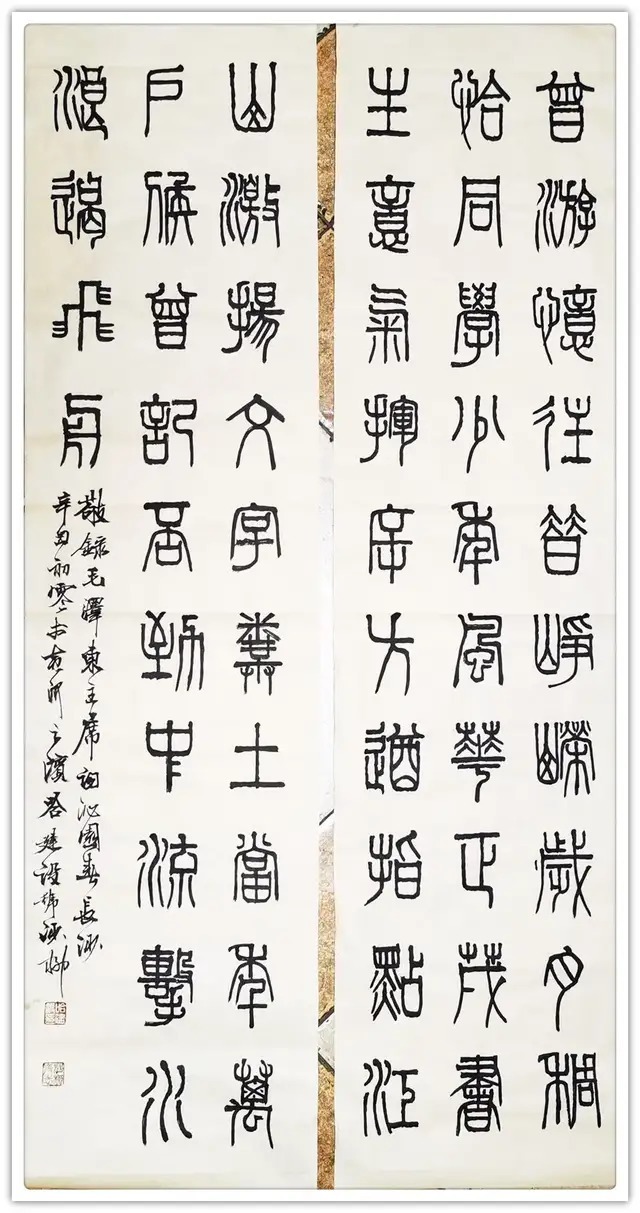 曾游憶往昔崢嶸歲月稠
恰同學少年風華正茂書
生意氣揮斥方遒指點江
山激揚文字糞土當年萬
戶侯曾記否到中流擊水
浪遏飛舟
敬錄毛澤東主席詞沁園春長沙
辛丑初 之濱 建設